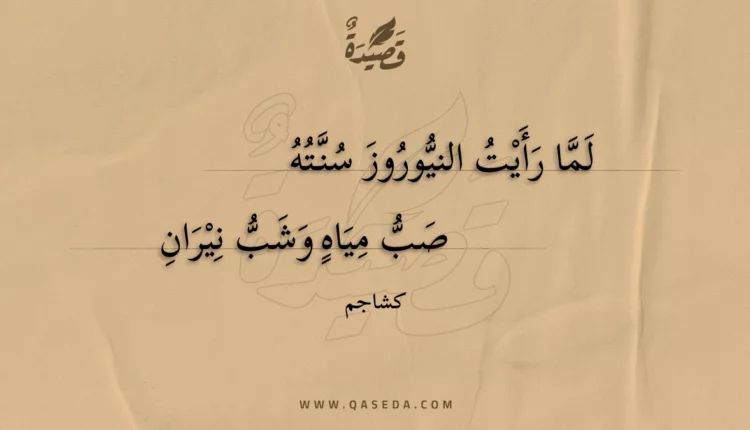 قَصِيْدَةٌ
لَمَّا رَأَيْتُ النيُّورُوزَ سُنَّتُهُ
صَبُّ مِيَاهٍ وَشَبُّ نِيْرَانِ
كشاجم
WWW.QASEDA.COM